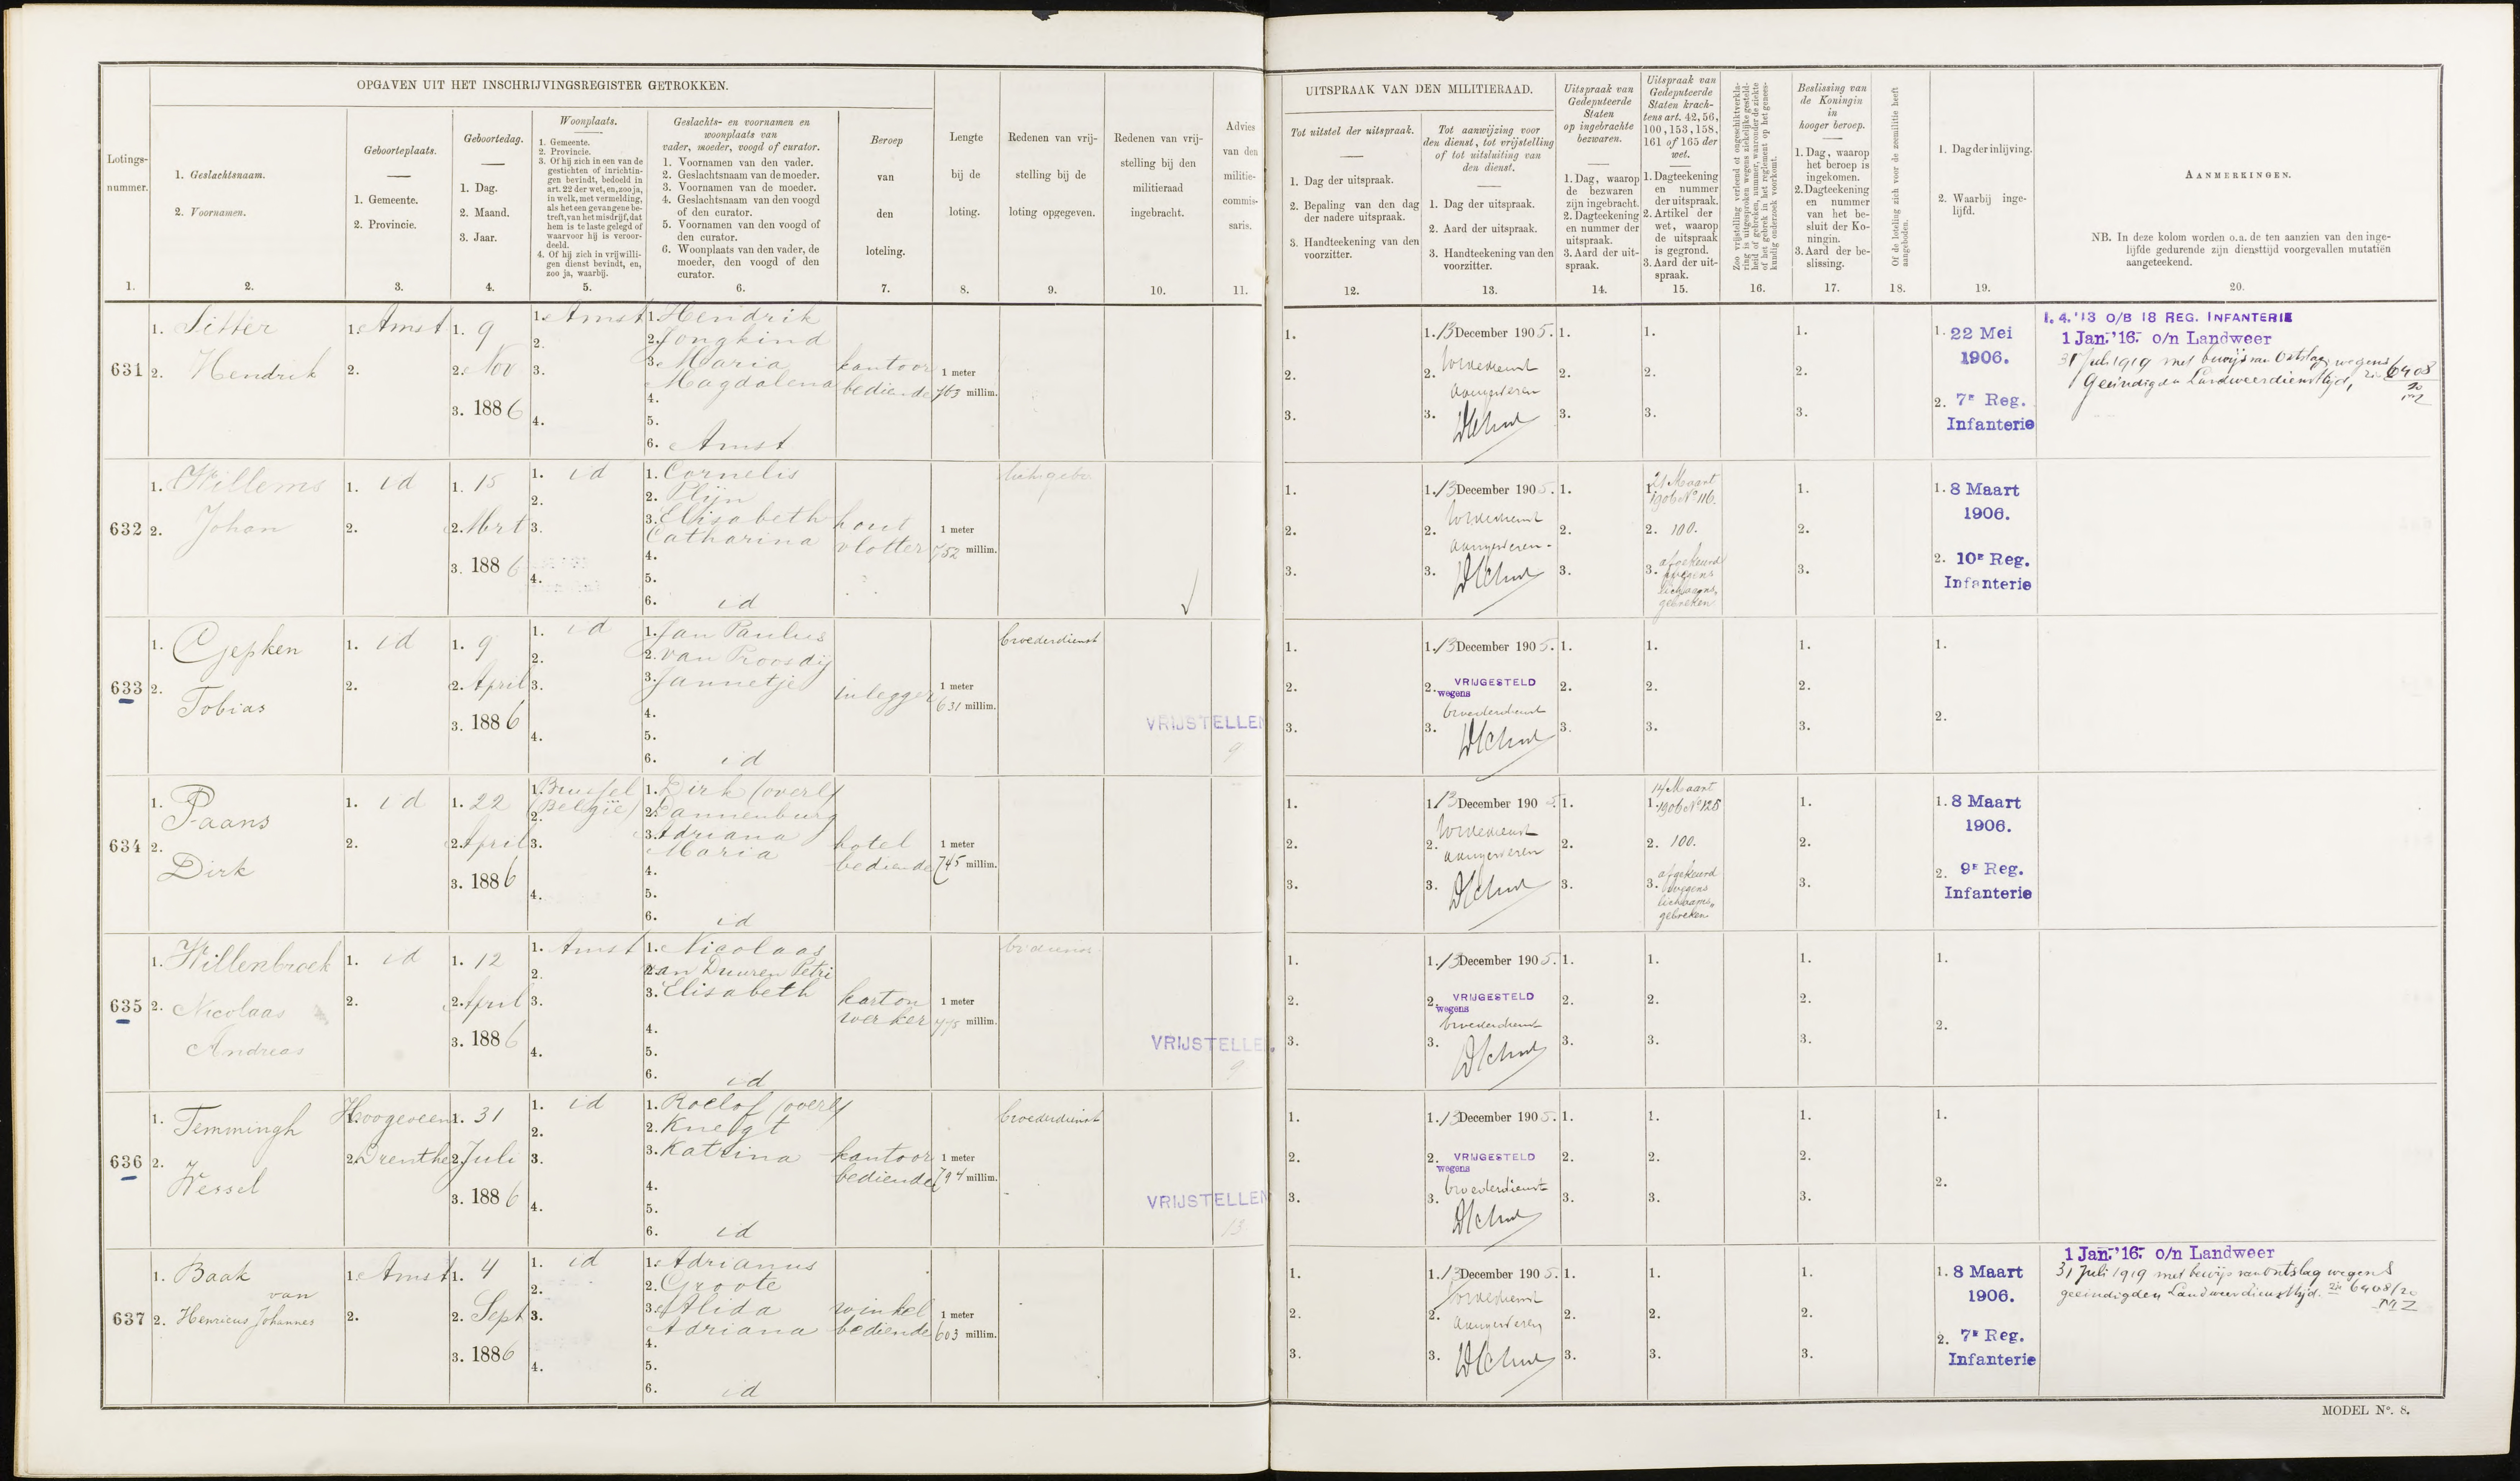 OPGAVEN UIT HET INSCHRIJVINGSREGISTER GETROKKEN.
Lotings-
nummer.
1. Geslachtsnaam.
2. Voornamen.
Geboorteplaats.
1. Gemeente.
2. Provincie.
Geboortedag.
1. Dag.
2. Maand.
3. Jaar.
Woonplaats.
1. Gemeente.
2. Provincie.
3. Of hij zich in een van de
gestichten of inrichtin-
gen bevindt, bedoeld in
art. 22 der wet, en, zoo ja,
in welk, met vermelding,
als het een gevangene be-
treft, van het misdrijf, dat
hem is te laste gelegd of
waarvoor hij is veroor-
deeld.
4. Of hij zich in vrijwilli-
gen dienst bevindt, en,
zoo ja, waarbij.
Geslachts- en voornamen en
woonplaats van
vader, moeder, voogd of curator.
1. Voornamen van den vader.
2. Geslachtsnaam van de moeder.
3. Voornamen van de moeder.
4. Geslachtsnaam van den voogd
of den curator.
5. Voornamen van den voogd of
den curator.
6. Woonplaats van den vader, de
moeder, den voogd of den
curator.
Beroep
van
den
loteling.
Lengte
bij de
loting.
Redenen van vrij-
stelling bij de
loting opgegeven.
Redenen van vrij-
stelling bij den
militieraad
ingebracht.
Advies
van den
militie-
commis-
saris.
1. 2. 3. 4. 5. 6. 7. 8. 9. 10. 11.
UITSPRAAK VAN DEN MILITIERAAD.
Tot uitstel der uitspraak.
1. Dag der uitspraak.
2. Bepaling van den dag
der nadere uitspraak.
3. Handteekening van den
voorzitter.
Tot aanwijzing voor
den dienst, tot vrijstelling
of tot uitsluiting van
den dienst.
1. Dag der uitspraak.
2. Aard der uitspraak.
3. Handteekening van den
voorzitter.
Uitspraak van
Gedeputeerde
Staten
op ingebrachte
bezwaren.
1. Dag, waarop
de bezwaren
zijn ingebracht.
2. Dagteekening
en nummer der
uitspraak.
3. Aard der uit-
spraak.
Uitspraak van
Gedeputeerde
Staten krach-
tens art. 42, 56,
100, 153, 158,
161 of 165 der
wet.
1. Dagteekening
en nummer
der uitspraak.
2. Artikel der
wet, waarop
de uitspraak
is gegrond.
3. Aard der uit-
spraak.
Zoo vrijstelling verleend of ongeschiktverkla-
ring is uitgesproken wegens ziekelijke gesteld-
heid of gebreken, nummer, waaronder de ziekte
of het gebrek in het reglement op het genees-
kundig onderzoek voorkomt.
Beslissing van
de Koningin
in
hooger beroep.
1. Dag, waarop
het beroep is
ingekomen.
2. Dagteekening
en nummer
van het be-
sluit der Ko-
ningin.
3. Aard der be-
slissing.
Of de loteling zich voor de zeemilitie heeft
aangeboden.
1. Dag der inlijving.
2. Waarbij inge-
lijfd.
AANMERKINGEN.
NB. In deze kolom worden o.a. de ten aanzien van den inge-
lijfde gedurende zijn diensttijd voorgevallen mutatiën
aangeteekend.
12. 13. 14. 15. 16. 17. 18. 19. 20.
631
1. Sitter
2. Hendrik
1. Amst
2.
1. 9
2. Nov
3. 1886
1. Amst
2.
3.
4.
1. Hendrik
2. Jongkind
3. Maria
Magdalena
4.
5.
6. Amst
kantoor
bediende
1 meter
763 millim.
1. 13 December 1905.
2. voor dienst
aangewezen
3.
1. 22 Mei
1906.
2. 7e Reg.
Infanterie
1.4.'13 O/B 18 REG. INFANTERIE
1 Jan. '16. o/n Landweer
31 Juli 1919 met bewijs van Ontslag wegens
geëindigden Landweerdiensttijd, zie 6408/20
MZ
632
1. Willems
2. Johan
1. id
2.
1. 15
2. Mrt
3. 1886
1. id
2.
3.
4.
1. Cornelis
2. Plijn
3. Elisabeth
Catharina
4.
5.
6. id
hout
vlotter
1 meter
752 millim.
1. 13 December 1905.
2. voor dienst
aangewezen.
3.
1. 21 Maart
1906 No 116.
2. 100.
3. afgekeurd
wegens
lichaams-
gebreken
1. 8 Maart
1906.
2. 10e Reg.
Infanterie
633
1. Gepken
2. Tobias
1. id
2.
1. 9
2. April
3. 1886
1. id
2.
3.
4.
1. Jan Paulus
2. van Proosdij
3. Jannetje
4.
5.
6. id
inlegger
1 meter
631 millim.
broederdienst
VRIJSTELLEN
9
1. 13 December 1905.
2. VRIJGESTELD
wegens
broederdienst
3.
634
1. Paans
2. Dirk
1. id
2.
1. 22
2. April
3. 1886
1. Brussel
(België)
2.
3.
4.
1. Dirk (overl)
2. Dannenburg
3. Adriana
Maria
4.
5.
6. id
hotel
bediende
1 meter
745 millim.
1. 13 December 1905.
2. voor dienst
aangewezen
3.
1. 14 Maart
1906 No 128
2. 100.
3. afgekeurd
wegens
lichaams-
gebreken
1. 8 Maart
1906.
2. 9e Reg.
Infanterie
635
1. Willenbroek
2. Nicolaas
Andreas
1. id
2.
1. 12
2. April
3. 1886
1. Amst
2.
3.
4.
1. Nicolaas
2. van Duuren Petri
3. Elisabeth
4.
5.
6. id
karton
werker
1 meter
775 millim.
VRIJSTELLEN
9
1. 13 December 1905.
2. VRIJGESTELD
wegens
broederdienst
3.
636
1. Temmingh
2. Wessel
1. Hoogeveen
2. Drenthe
1. 31
2. Juli
3. 1886
1. id
2.
3.
4.
1. Roelof (overl)
2. Knegt
3. Katrina
4.
5.
6. id
kantoor
bediende
1 meter
794 millim.
broederdienst
VRIJSTELLEN
13
1. 13 December 1905.
2. VRIJGESTELD
wegens
broederdienst
3.
637
1. Baak
van
2. Henricus Johannes
1. Amst
2.
1. 4
2. Sept
3. 1886
1. id
2.
3.
4.
1. Adrianus
2. Groote
3. Alida
Adriana
4.
5.
6. id
winkel
bediende
1 meter
603 millim.
1. 13 December 1905.
2. voor dienst
aangewezen
3.
1. 8 Maart
1906.
2. 7e Reg.
Infanterie
1 Jan. '16. o/n Landweer
31 Juli 1919 met bewijs van Ontslag wegens
geëindigden Landweerdiensttijd. zie 6408/20
MZ
MODEL No. 8.